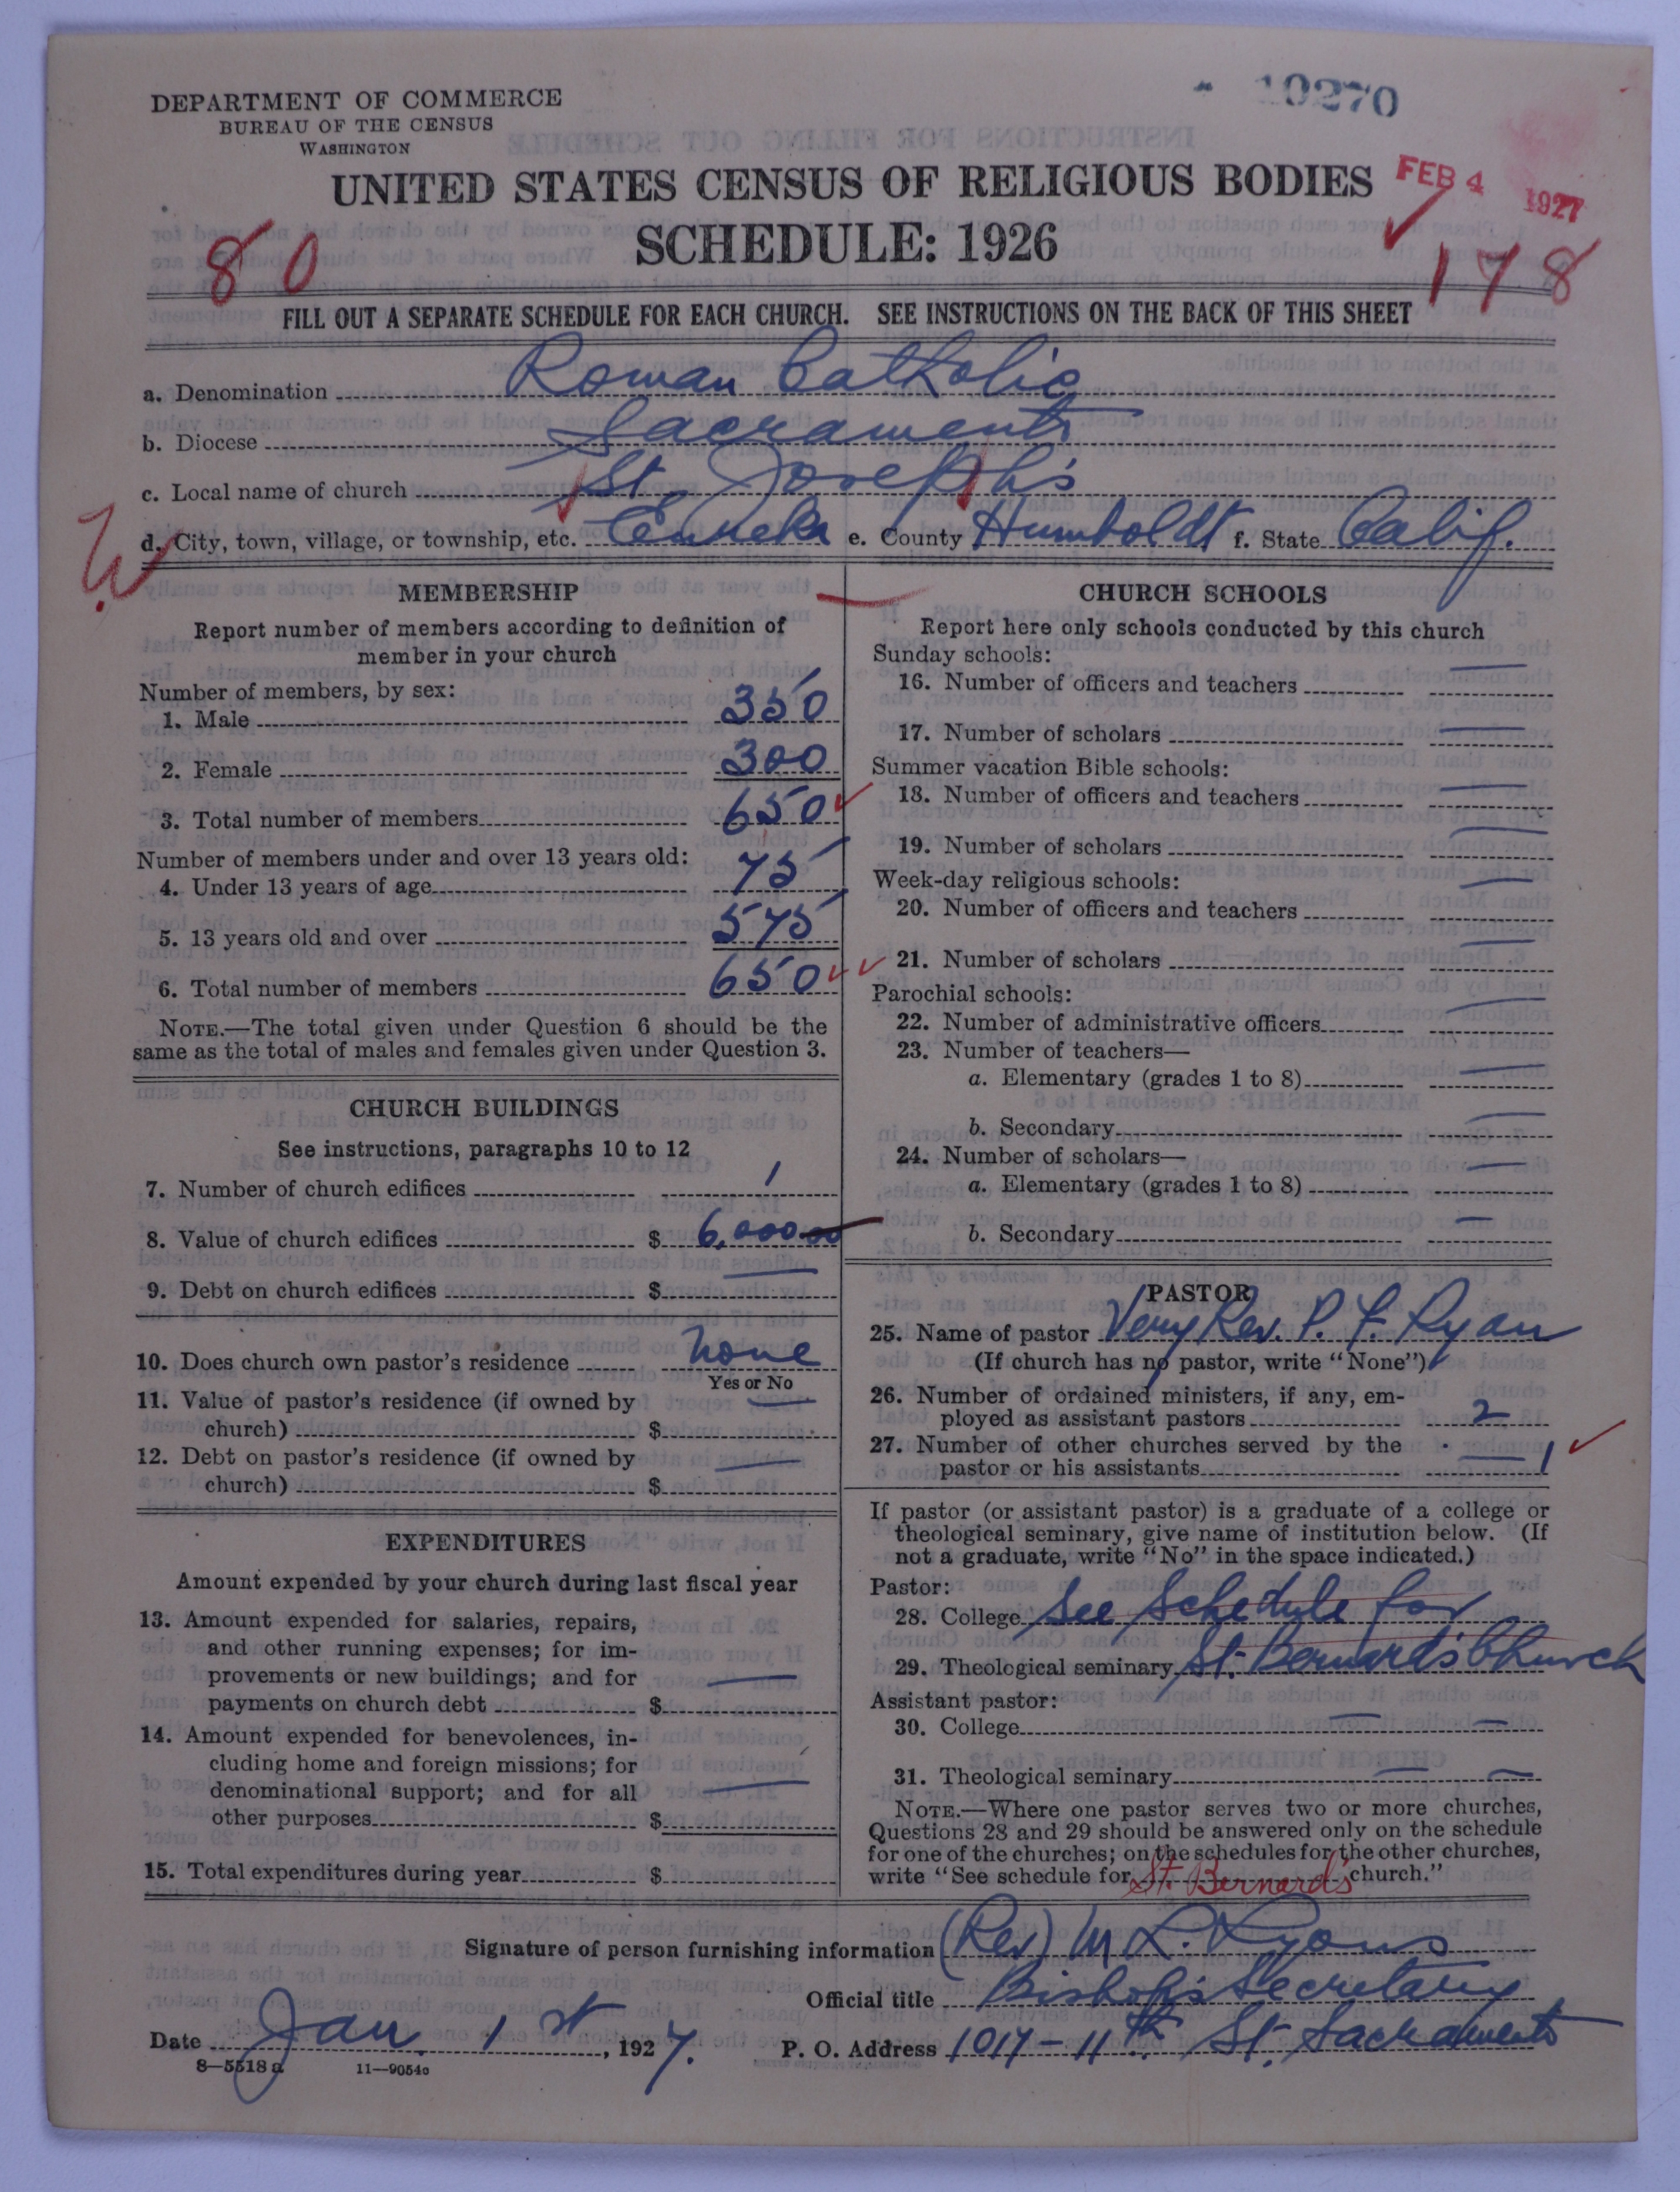 DEPARTMENT OF COMMERCE
BUREAU OF THE CENSUS
WASHINGTON
10270
UNITED STATES CENSUS OF RELIGIOUS BODIES
FEB 4 1927
SCHEDULE: 1926
80
178
FILL OUT A SEPARATE SCHEDULE FOR EACH CHURCH. SEE INSTRUCTIONS ON THE BACK OF THIS SHEET
a. Denomination Roman Catholic
b. Diocese Sacramento
c. Local name of church St. Joseph's
d. City, town, village, or township, etc. Eureka e. County Humboldt f. State Calif.
W
MEMBERSHIP
Report number of members according to definition of
member in your church
Number of members, by sex:
1. Male 350
2. Female 300
3. Total number of members 650
Number of members under and over 13 years old:
4. Under 13 years of age 75
5. 13 years old and over 575
6. Total number of members 650
NOTE.—The total given under Question 6 should be the
same as the total of males and females given under Question 3.
CHURCH BUILDINGS
See instructions, paragraphs 10 to 12
7. Number of church edifices 1
8. Value of church edifices $ 6,000.00
9. Debt on church edifices $ —
10. Does church own pastor's residence none
Yes or No
11. Value of pastor's residence (if owned by
church) $ —
12. Debt on pastor's residence (if owned by
church) $ —
EXPENDITURES
Amount expended by your church during last fiscal year
13. Amount expended for salaries, repairs,
and other running expenses; for im-
provements or new buildings; and for
payments on church debt $ —
14. Amount expended for benevolences, in-
cluding home and foreign missions; for
denominational support; and for all
other purposes $ —
15. Total expenditures during year $
CHURCH SCHOOLS
Report here only schools conducted by this church
Sunday schools:
16. Number of officers and teachers —
17. Number of scholars —
Summer vacation Bible schools:
18. Number of officers and teachers —
19. Number of scholars —
Week-day religious schools:
20. Number of officers and teachers —
21. Number of scholars —
Parochial schools:
22. Number of administrative officers —
23. Number of teachers—
a. Elementary (grades 1 to 8) —
b. Secondary —
24. Number of scholars—
a. Elementary (grades 1 to 8) —
b. Secondary —
PASTOR
25. Name of pastor Very Rev. P. F. Ryan
(If church has no pastor, write "None")
26. Number of ordained ministers, if any, em-
ployed as assistant pastors 2
27. Number of other churches served by the
pastor or his assistants 1
If pastor (or assistant pastor) is a graduate of a college or
theological seminary, give name of institution below. (If
not a graduate, write "No" in the space indicated.)
Pastor:
28. College See Schedule for
29. Theological seminary St. Bernard's Church
Assistant pastor:
30. College — —
31. Theological seminary — —
NOTE.—Where one pastor serves two or more churches,
Questions 28 and 29 should be answered only on the schedule
for one of the churches; on the schedules for the other churches,
write "See schedule for St. Bernard's church."
Signature of person furnishing information (Rev) M L. Lyons
Official title Bishop's Secretary
Date Jan. 1st, 1927. P. O. Address 1017-11th St. Sacramento
8—5518a 11—9054o